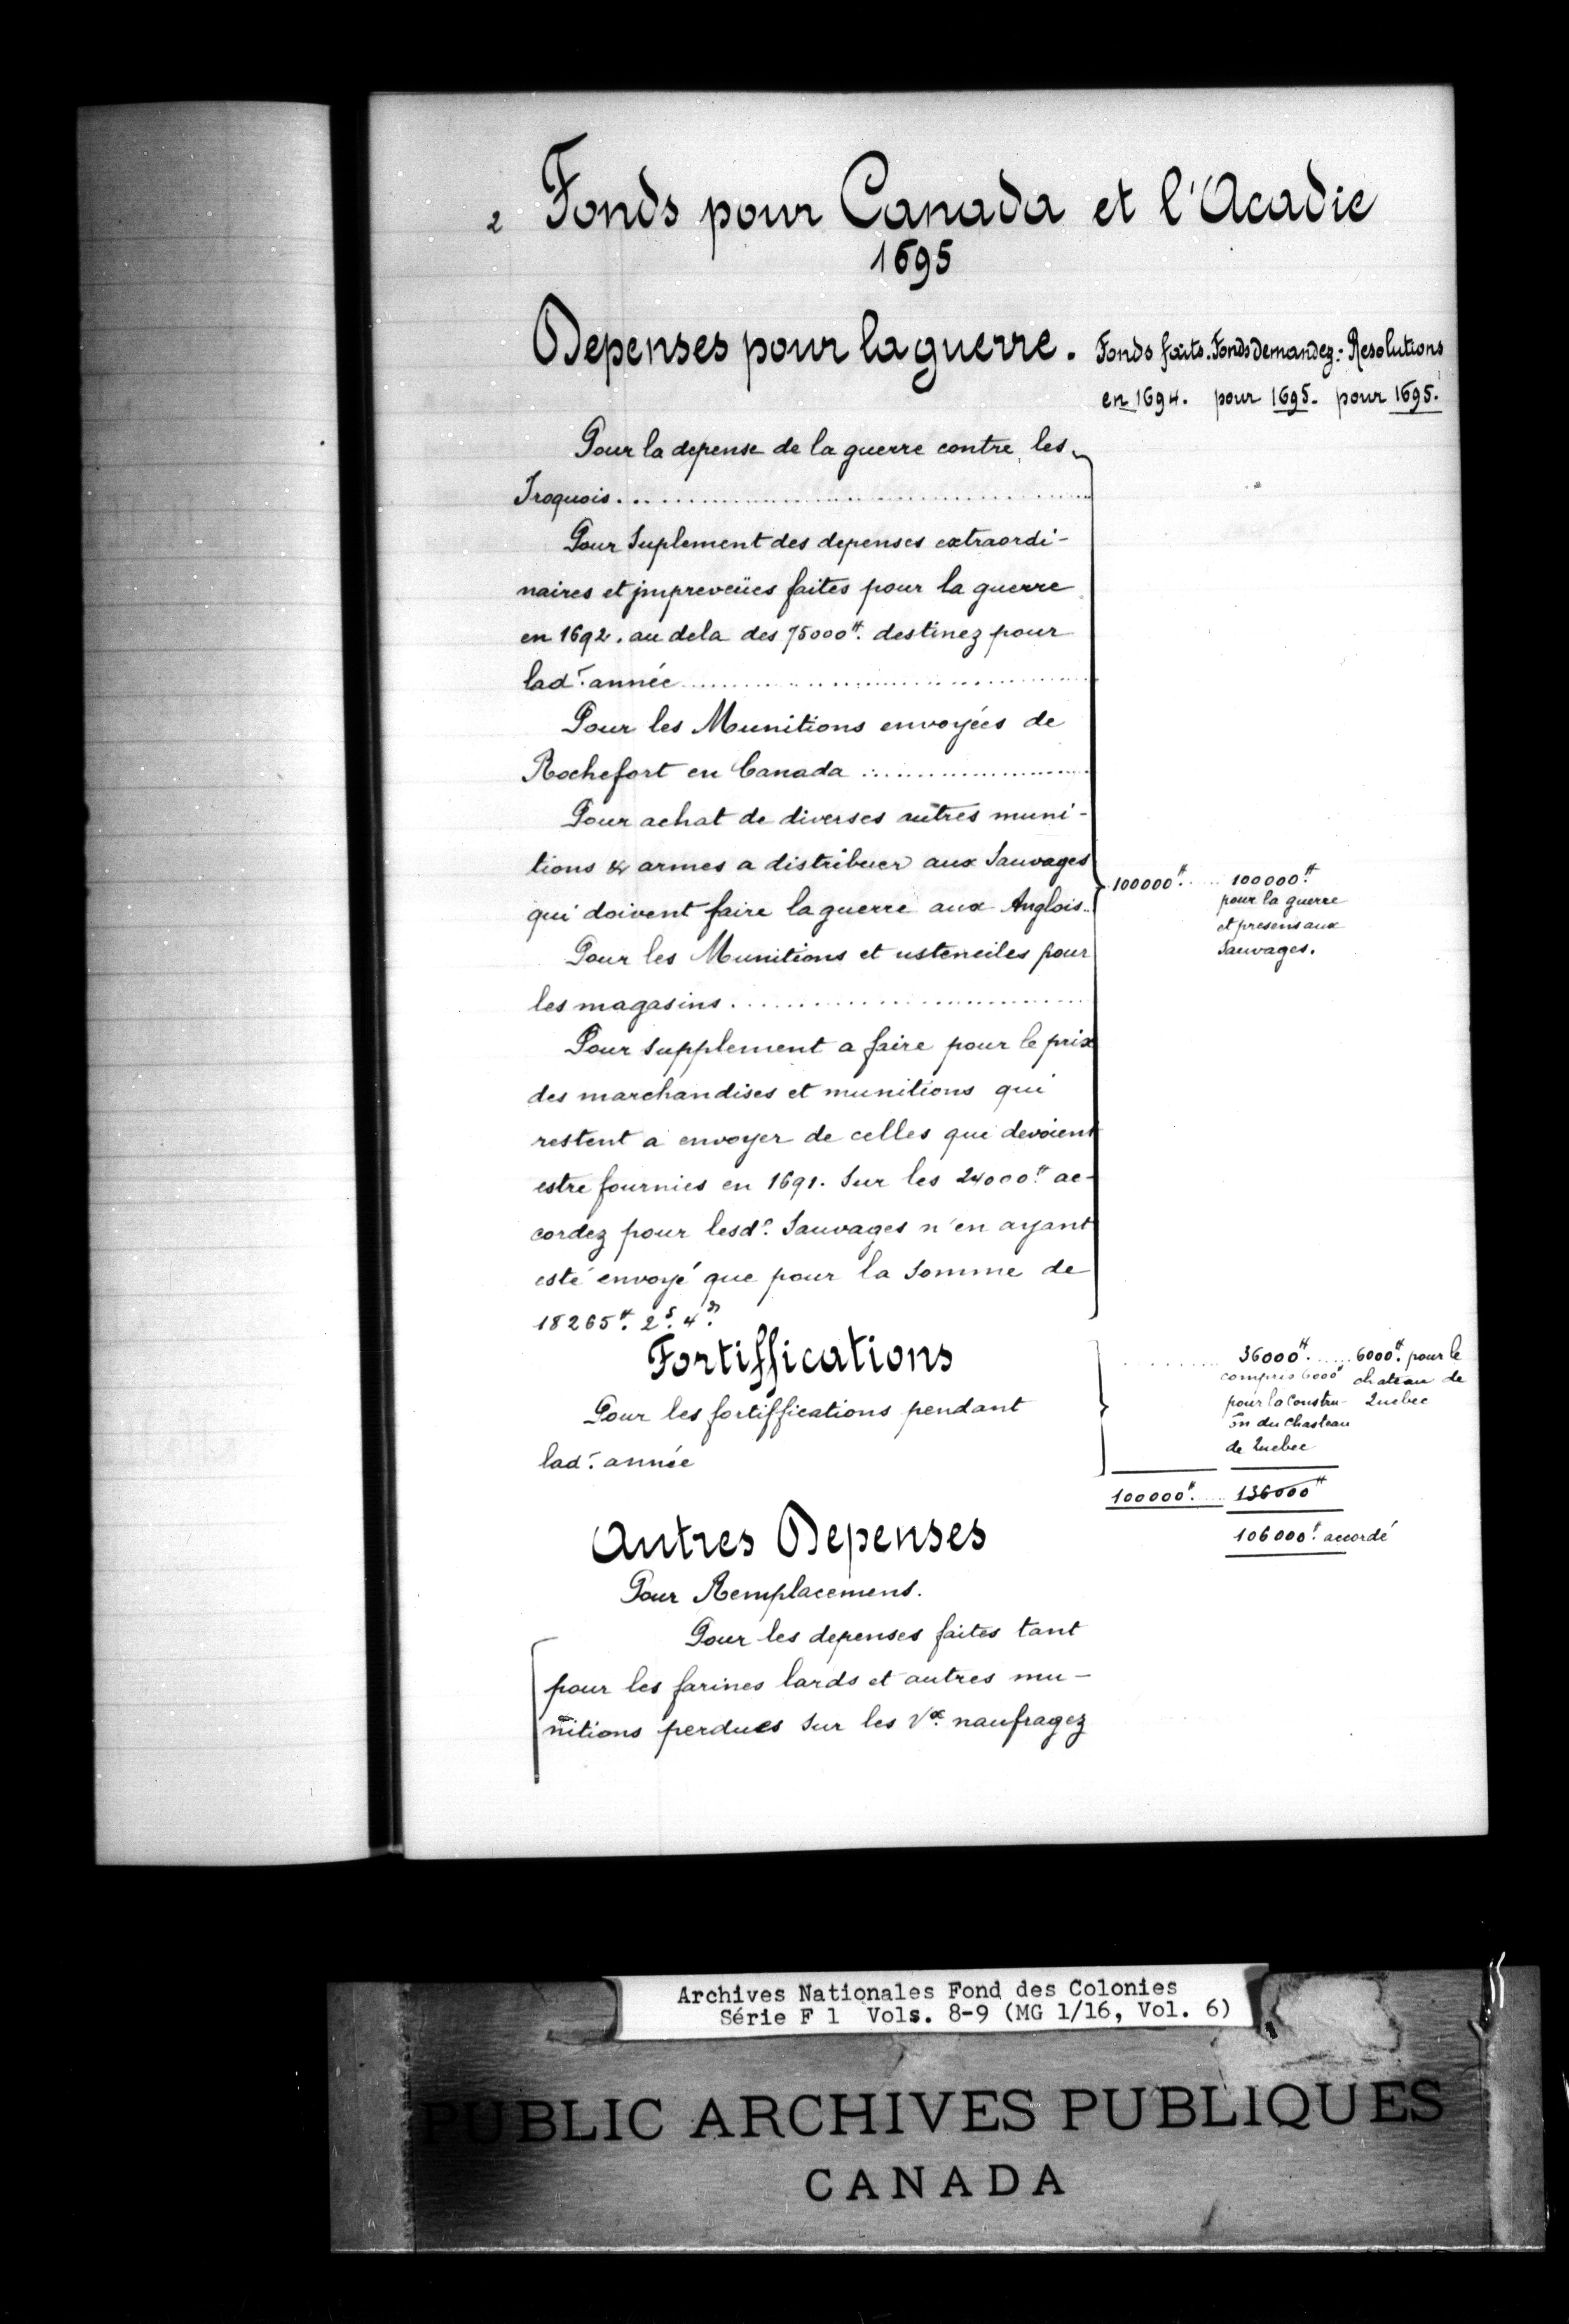 2 Fonds pour Canada et l'Acadie
1695
Depenses pour la guerre. Fonds faits. Fonds demandez: Resolutions
en 1694. pour 1695. pour 1695.
Pour la depense de la guerre contre les
Iroquois
Pour Suplement des depenses extraordi-
naires et jmpreveües faites pour la guerre
en 1692. au dela des 75000ᵗᵗ. destinez pour
lad.ᵗ année
Pour les Munitions envoyées de
Rochefort en Canada
Pour achat de diverses autres muni-
tions & armes a distribuer aux Sauvages
qui doivent faire la guerre aux Anglois
100000ᵗᵗ. 100000ᵗᵗ
pour la guerre
et presens aux
Sauvages.
Pour les Munitions et ustenciles pour
les magasins
Pour supplement a faire pour le prix
des marchandises et munitions qui
restent a envoyer de celles qui devoient
estre fournies en 1691. Sur les 24000ᵗᵗ ac-
cordez pour lesd.ˢ Sauvages n'en ayant
esté envoyé que pour la Somme de
18265ᵗᵗ. 2ˢ. 4ᵈ.
Fortiffications
Pour les fortiffications pendant
lad.ᵗ année
36000ᵗᵗ. 6000ᵗᵗ. pour le
compris 6000ᵗᵗ chateau de
pour la Constru- Quebec
ōn du Chasteau
de Quebec
100000ᵗᵗ. 136000ᵗᵗ
106000ᵗᵗ. accordé
Autres Depenses
Pour Remplacemens.
Pour les depenses faites tant
pour les farines lards et autres mu-
nitions perdues Sur les Vˣ. naufragez
Archives Nationales Fond des Colonies
Série F 1 Vols. 8-9 (MG 1/16, Vol. 6)
PUBLIC ARCHIVES PUBLIQUES
CANADA